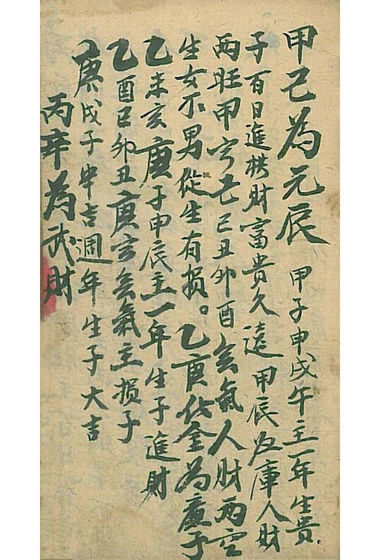 甲己為元辰 甲子申戌午主一年生貴
子百日進横財富貴久遠甲辰及庫人財
両旺甲寅乙己丑卯酉玄氣人財両空
生女不男従生有损。乙庚化金為廉子
乙未亥庚子申辰主一年生子進財
乙酉巳卯丑庚寅玄氣主损子
庚戌子半吉週年生子大吉
丙辛為武財